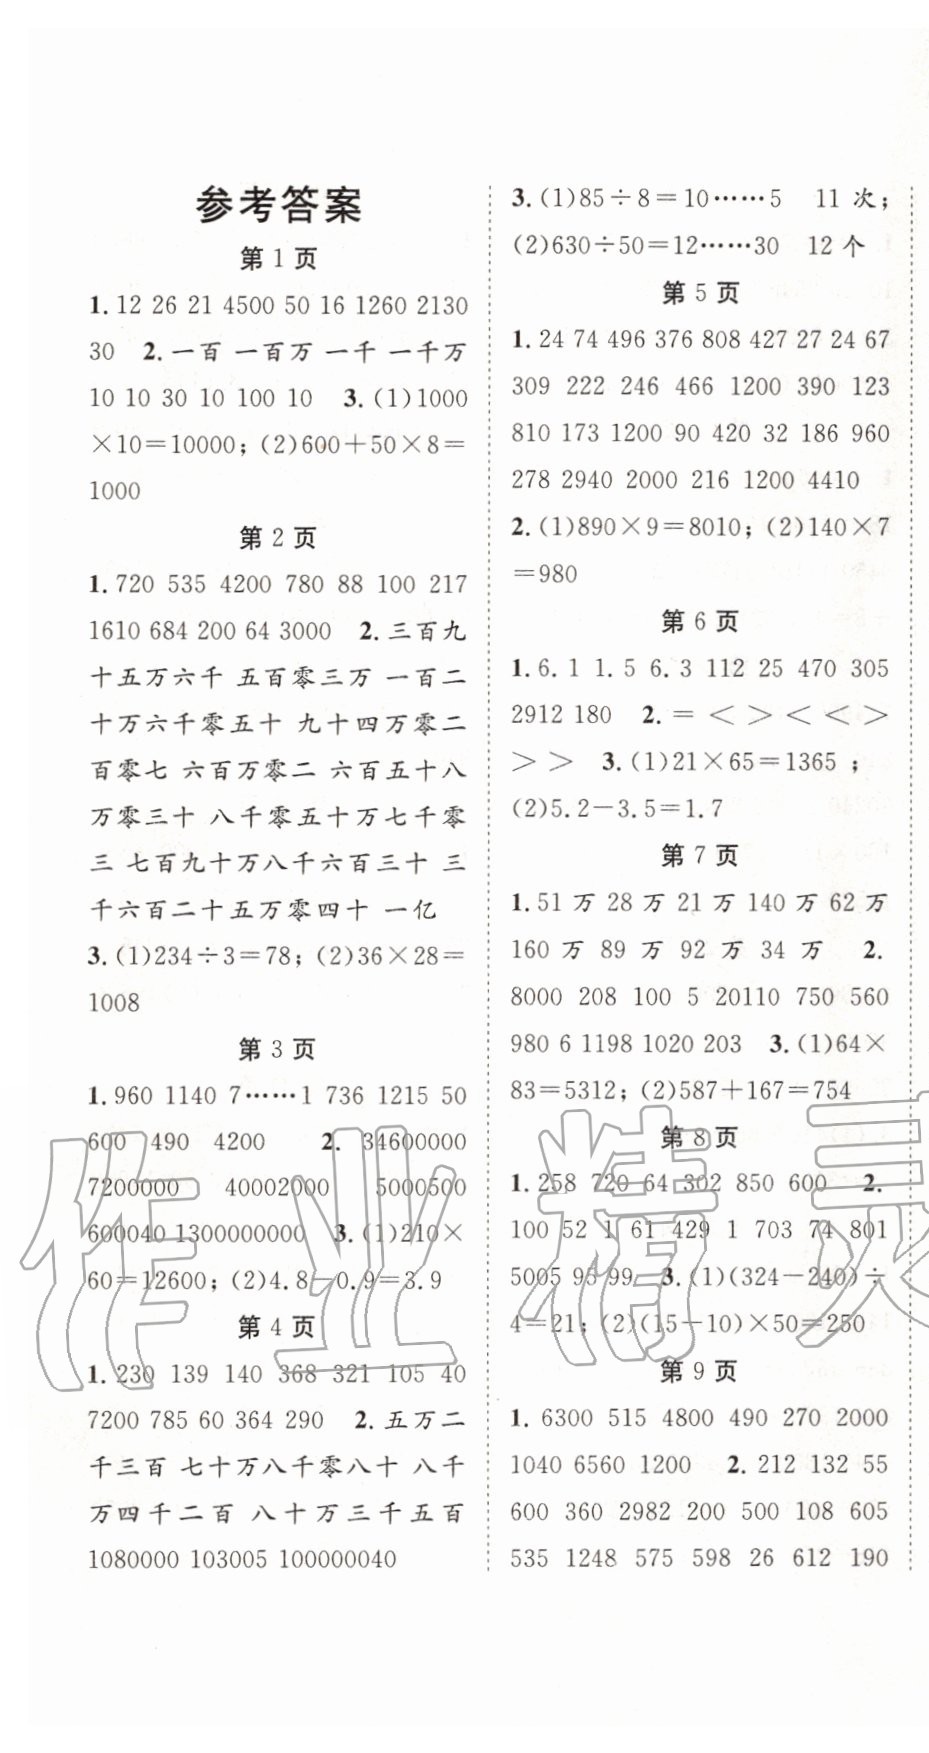 参考答案
第1页
1. 12 26 21 4500 50 16 1260 2130
30 2. 一百 一百万 一千 一千万
10 10 30 10 100 10 3. (1)1000
×10=10000; (2)600+50×8=
1000
第2页
1. 720 535 4200 780 88 100 217
1610 684 200 64 3000 2. 三百九
十五万六千 五百零三万 一百二
十万六千零五十 九十四万零二
百零七 六百万零二 六百五十八
万零三十 八千零五十万七千零
三 七百九十万八千六百三十 三
千六百二十五万零四十 一亿
3. (1)234÷3=78; (2)36×28=
1008
第3页
1. 960 1140 7……1 736 1215 50
600 490 4200 2. 34600000
7200000 40002000 5000500
600040 1300000000 3. (1)210×
60=12600; (2)4.8-0.9=3.9
第4页
1. 230 139 140 368 321 105 40
7200 785 60 364 290 2. 五万二
千三百 七十万八千零八十 八千
万四千二百 八十万三千五百
1080000 103005 100000040
3. (1)85÷8=10……5 11次;
(2)630÷50=12……30 12个
第5页
1. 24 74 496 376 808 427 27 24 67
309 222 246 466 1200 390 123
810 173 1200 90 420 32 186 960
278 2940 2000 216 1200 4410
2. (1)890×9=8010; (2)140×7
=980
第6页
1. 6.1 1.5 6.3 112 25 470 305
2912 180 2. = < > < < >
> > 3. (1)21×65=1365 ;
(2)5.2-3.5=1.7
第7页
1. 51万 28万 21万 140万 62万
160万 89万 92万 34万 2.
8000 208 100 5 20110 750 560
980 6 1198 1020 203 3. (1)64×
83=5312; (2)587+167=754
第8页
1. 258 720 64 302 850 600 2.
100 52 1 61 429 1 703 74 801
5005 95 99 3. (1)(324-240)÷
4=21; (2)(15-10)×50=250
第9页
1. 6300 515 4800 490 270 2000
1040 6560 1200 2. 212 132 55
600 360 2982 200 500 108 605
535 1248 575 598 26 612 190
作业精灵